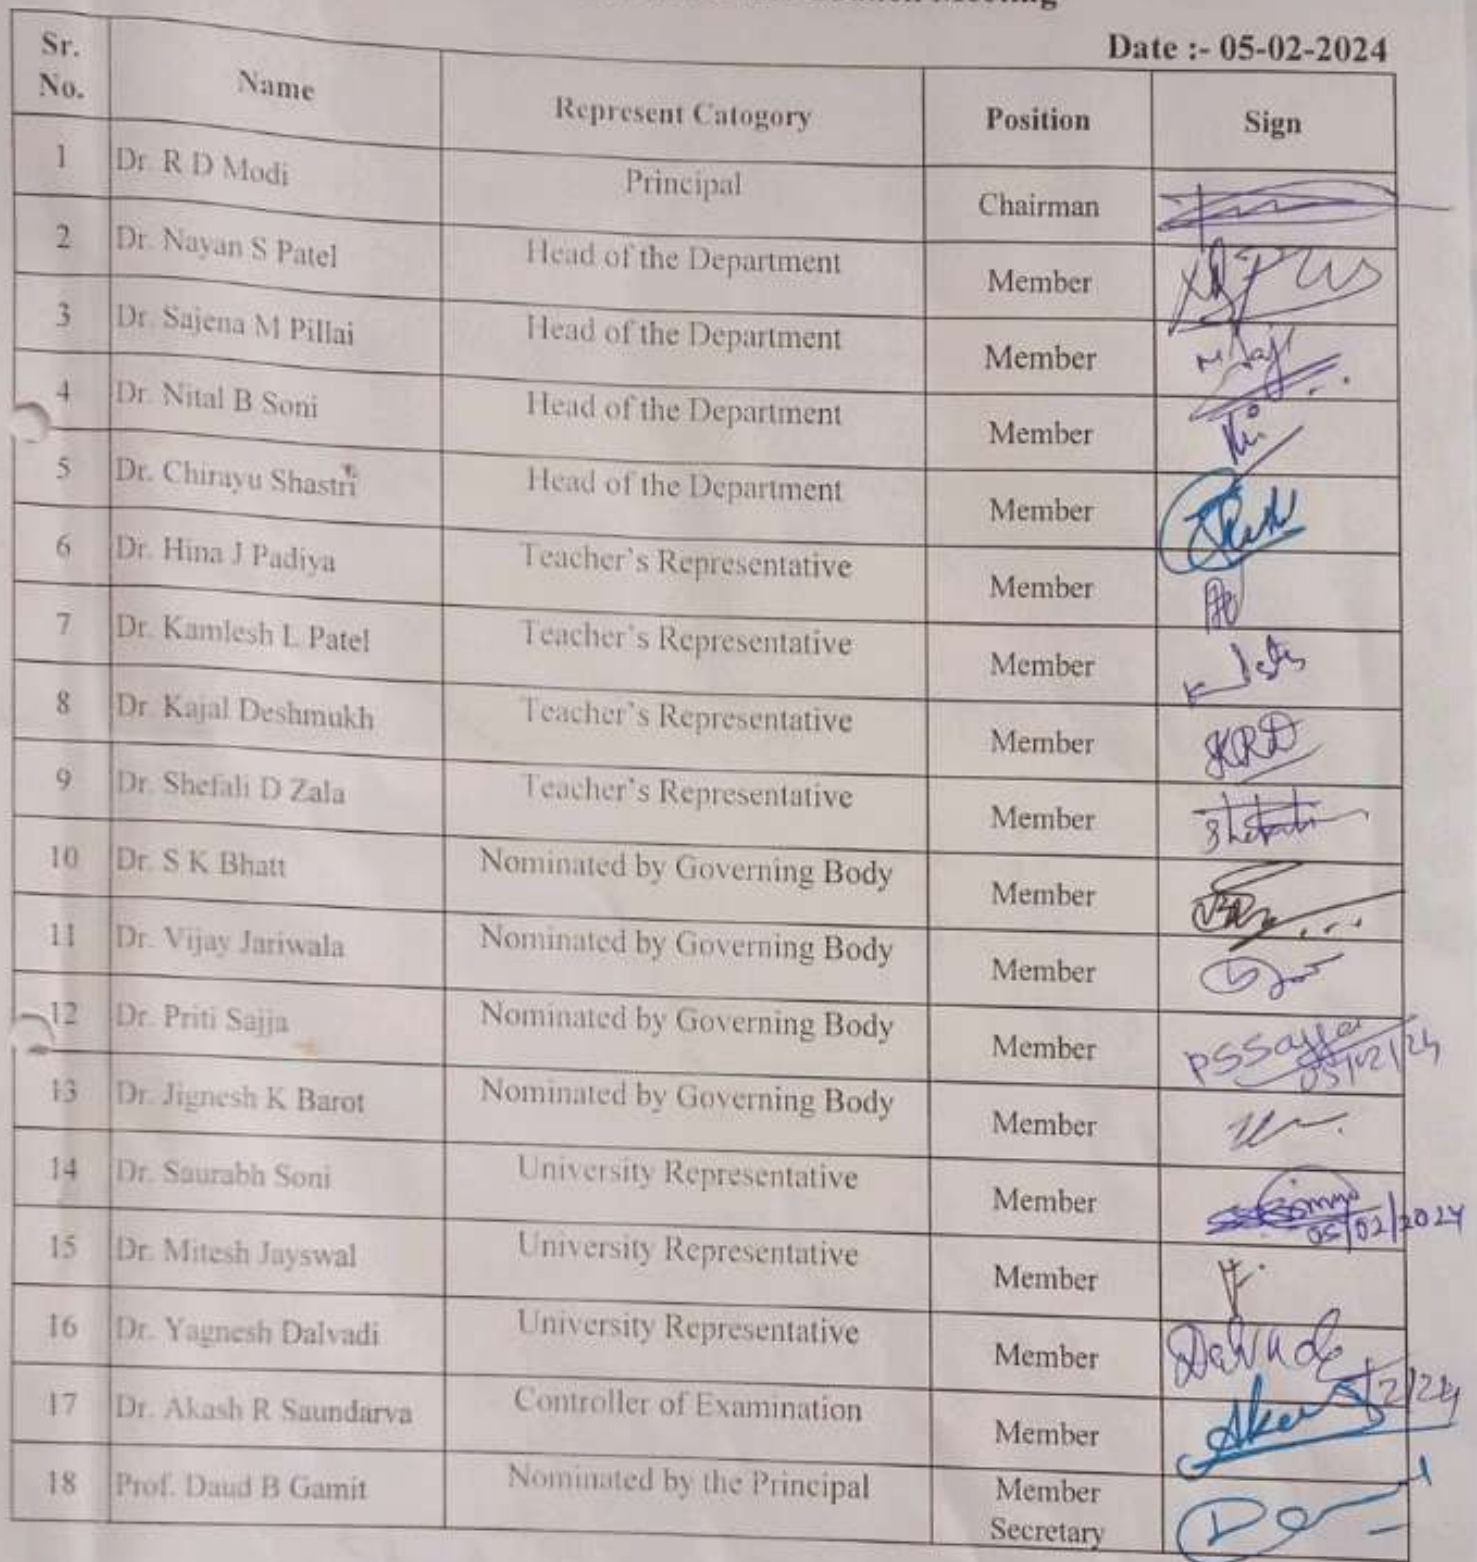 Meeting
Date :- 05-02-2024
Sr. No. Name Represent Catogory Position Sign
1 Dr. R D Modi Principal Chairman
2 Dr. Nayan S Patel Head of the Department Member
3 Dr. Sajena M Pillai Head of the Department Member
4 Dr. Nital B Soni Head of the Department Member
5 Dr. Chirayu Shastri Head of the Department Member
6 Dr. Hina J Padiya Teacher's Representative Member
7 Dr. Kamlesh L Patel Teacher's Representative Member
8 Dr. Kajal Deshmukh Teacher's Representative Member KRD
9 Dr. Shefali D Zala Teacher's Representative Member Shefali
10 Dr. S K Bhatt Nominated by Governing Body Member
11 Dr. Vijay Jariwala Nominated by Governing Body Member
12 Dr. Priti Sajja Nominated by Governing Body Member PSSajja
05/02/24
13 Dr. Jignesh K Barot Nominated by Governing Body Member
14 Dr. Saurabh Soni University Representative Member
05/02/2024
15 Dr. Mitesh Jayswal University Representative Member
16 Dr. Yagnesh Dalvadi University Representative Member
17 Dr. Akash R Saundarva Controller of Examination Member
18 Prof. Daud B Gamit Nominated by the Principal Member Secretary